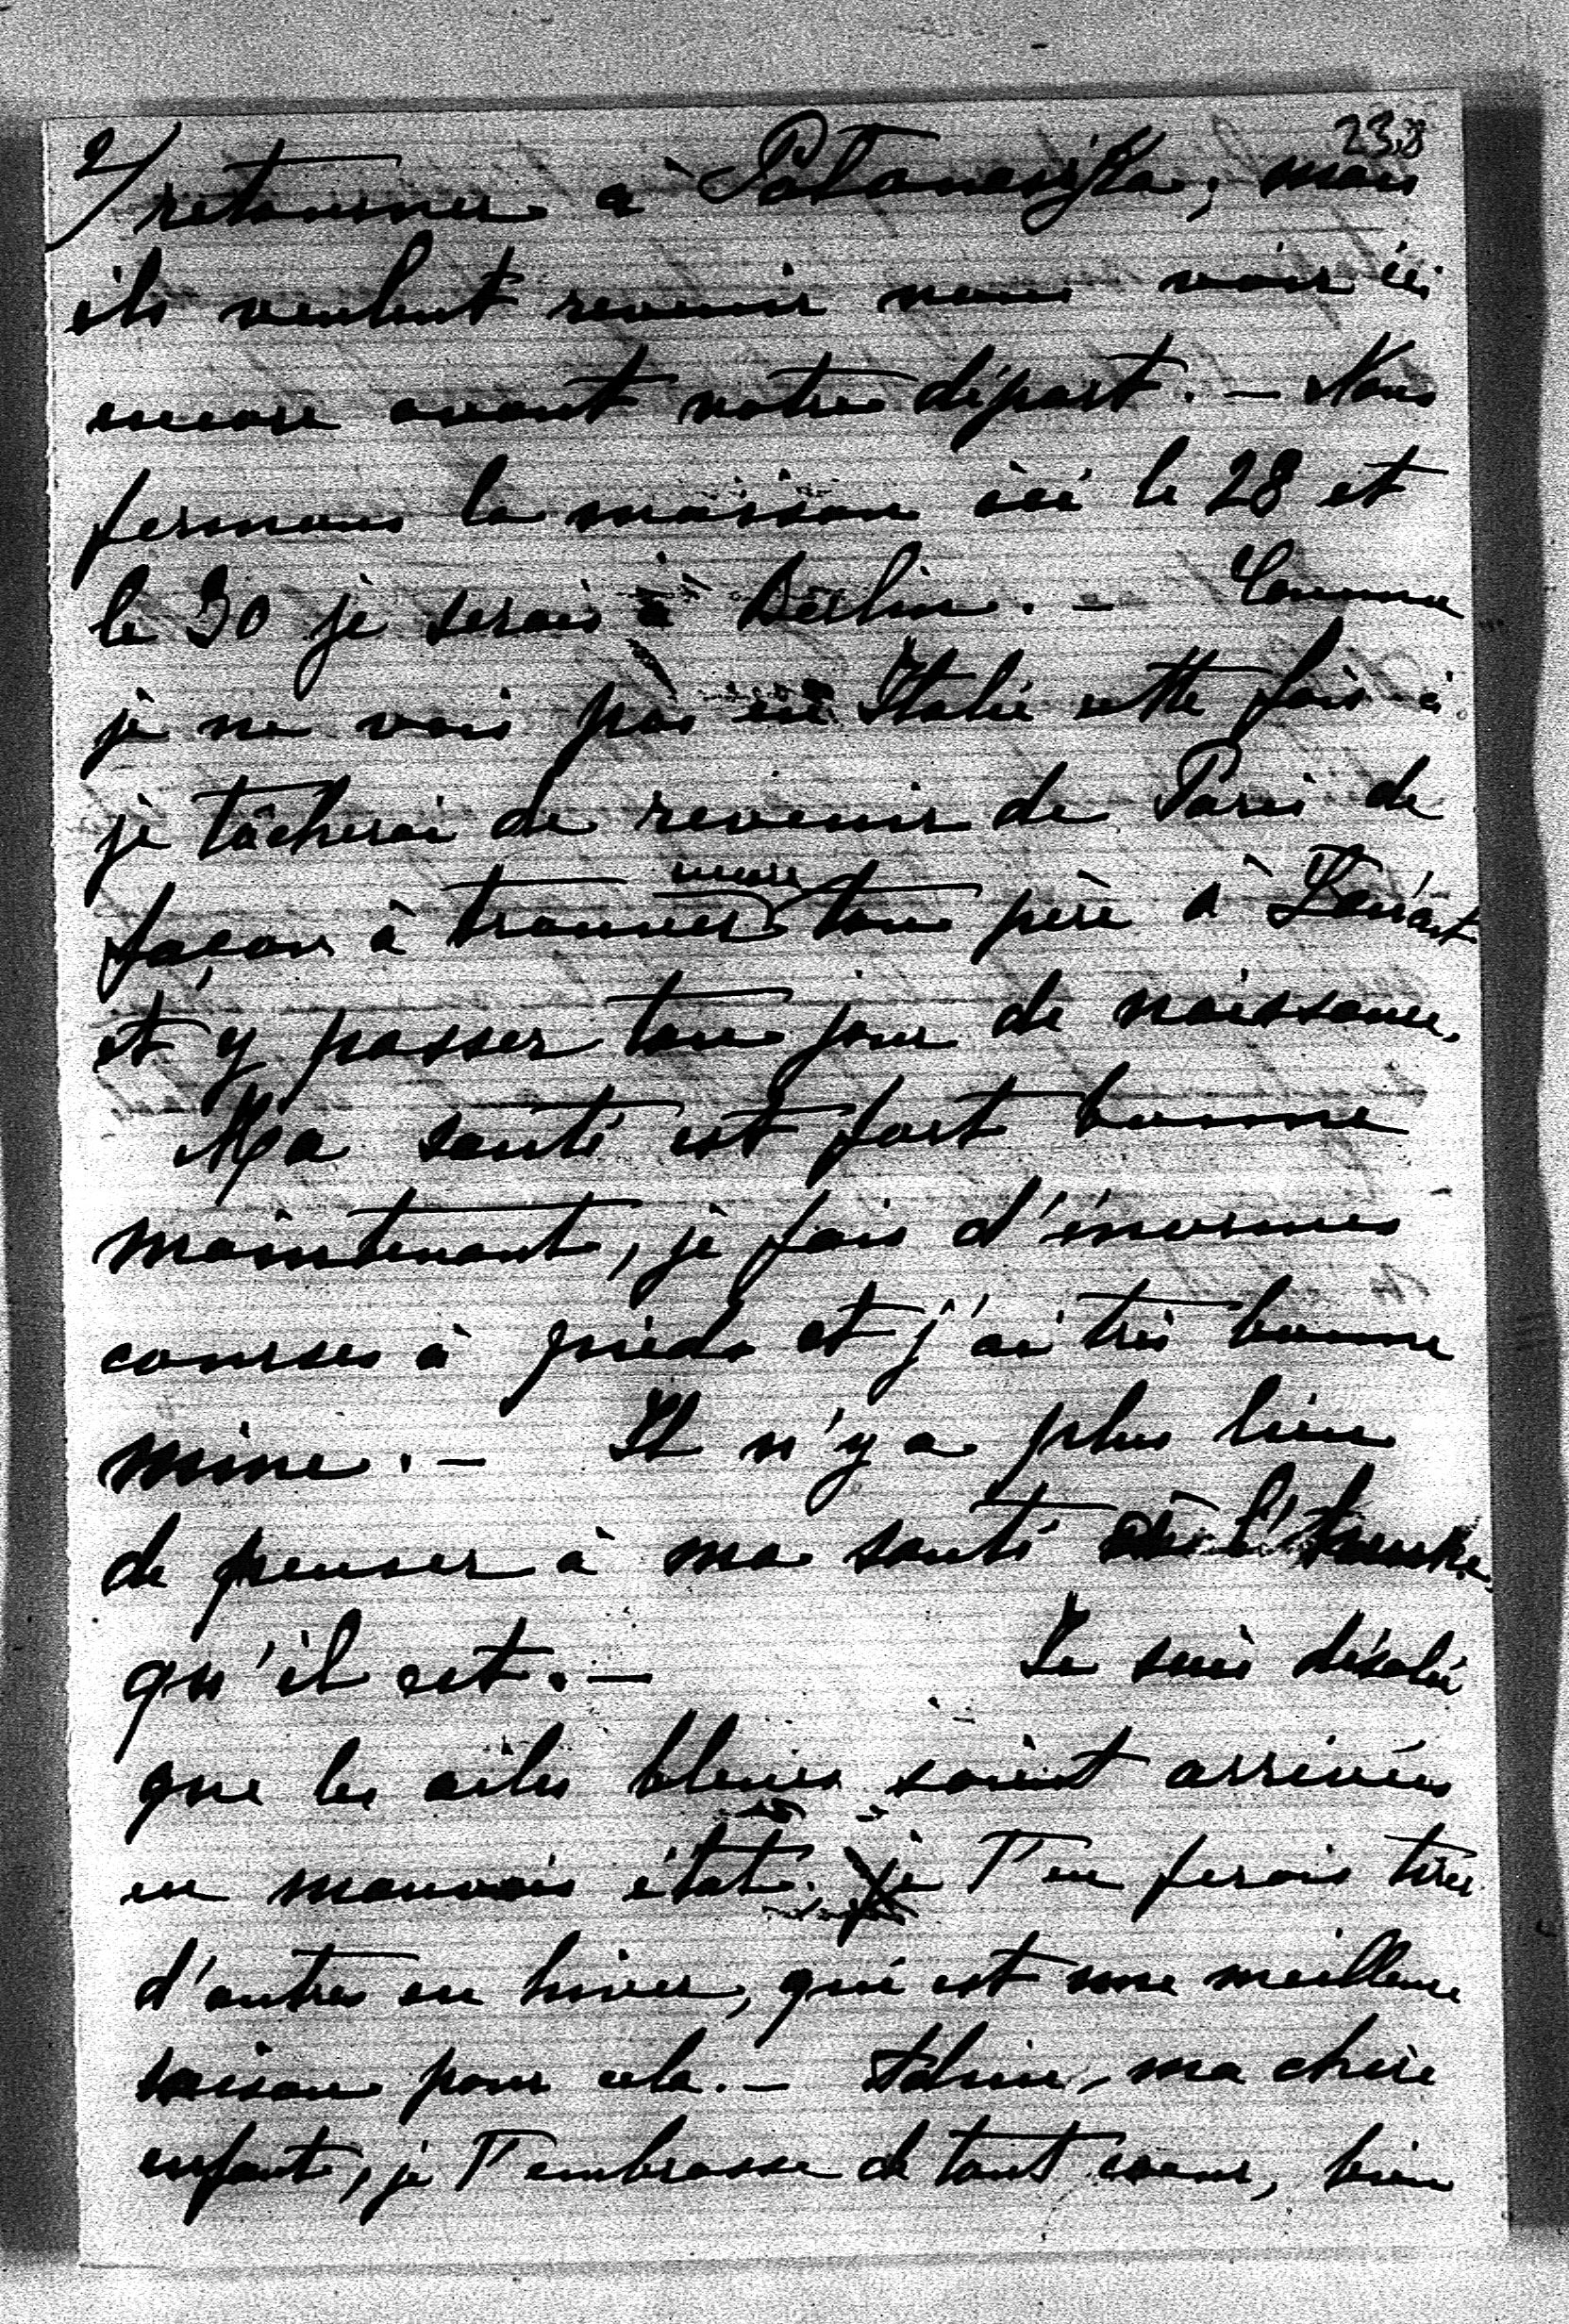 238
2/ retourner à Patonasijka, mais
ils veulent revenir nous voir ici
encore avant notre départ. – Nous
fermons la maison ici le 28 et
le 30 je serais à Berlin. – Comme
je ne vais pas en Italie cette fois-ci
je tâcherai de revenir de Paris de
façon à trouver encore ton père à
et y passer ton jour de naissance.
Ma santé est fort bonne
maintenant, je fais d'énormes
courses à pieds et j'ai très bonne
mine. – Il n'y a plus lieu
de penser à ma santé
qu'il est. – Je suis désolé
que les ailes bleues soient arrivées
en mauvais état. je T'en ferais tirer
d'autres en hiver, qui est une meilleure
saison pour cela. – Adieu, ma chère
enfante, je T'embrasse de tout coeur, bien